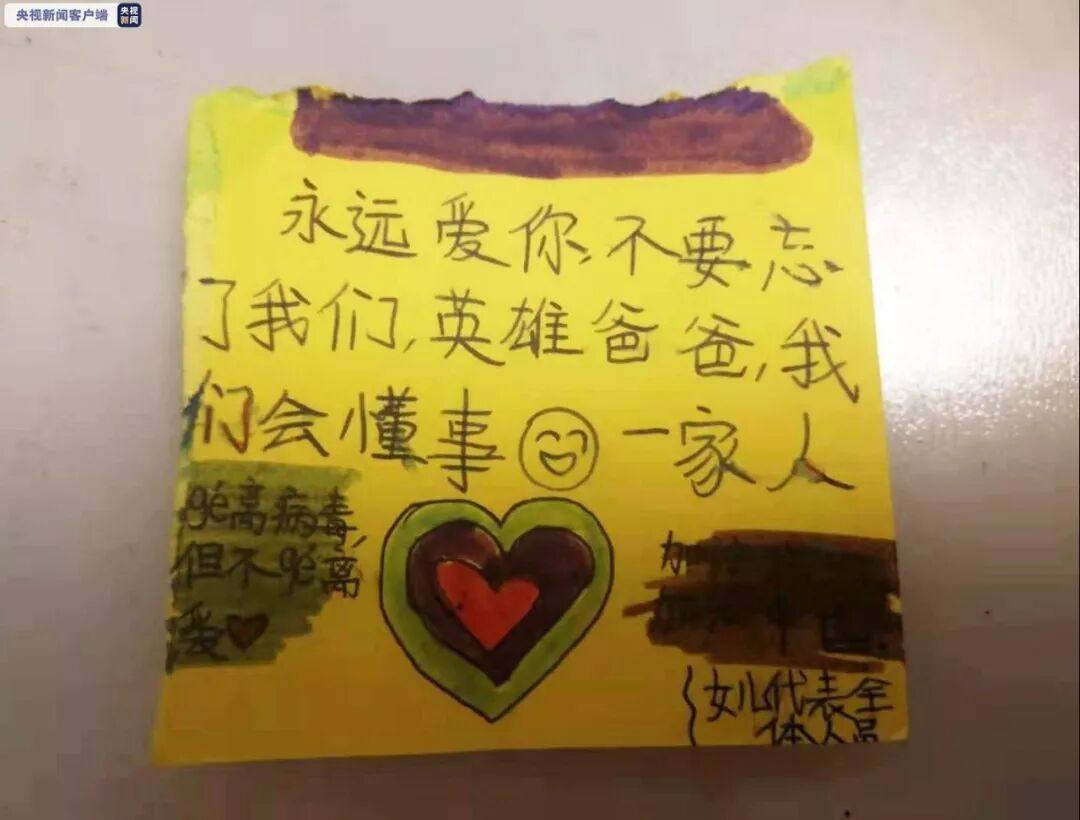 央视新闻客户端
央视
新闻
永远爱你,不要忘
了我们,英雄爸爸,我
们会懂事 一家人
gé离病毒,
但不gé离
爱
女儿代表全
体人员